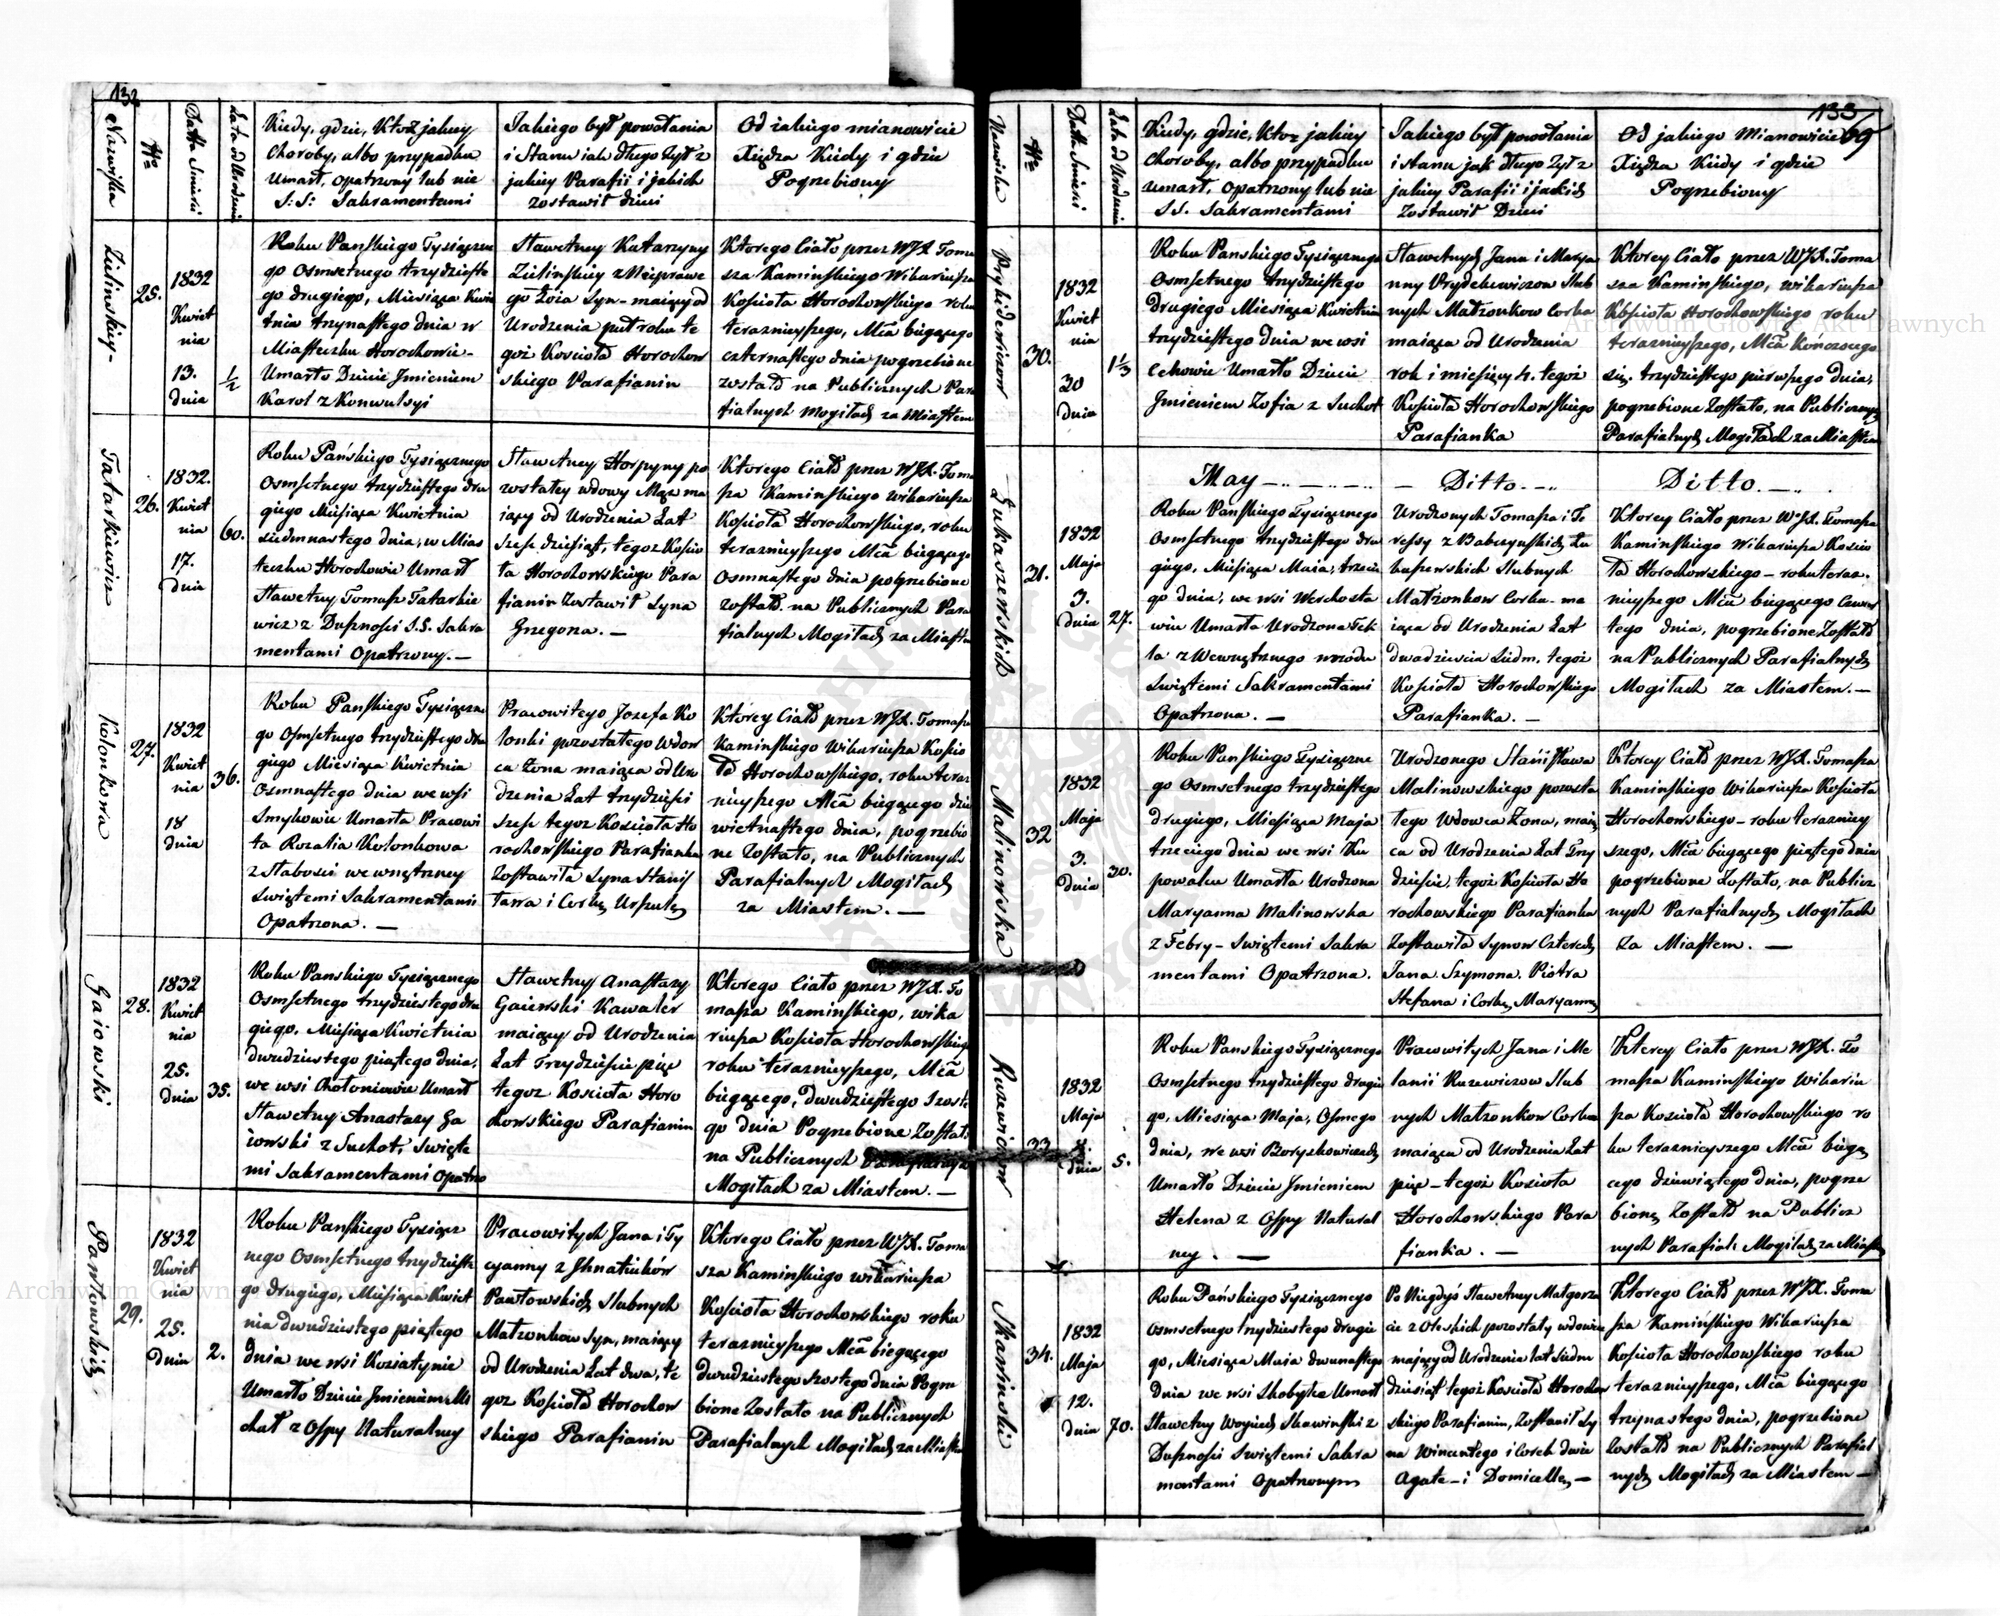 132
Nazwiska
No
Datta Smierci
Lata od Urodzenia
Kiedy, gdzie, Ktoż jakiey
Choroby, albo przypadku
Umarł, opatrzony lub nie
S: S: Sakramentami
Jakiego był powołania
i Stanu iak długo żył z
jakiey Parafii i jakich
zostawił dzieci
Od iakiego mianowicie
Xiędza Kiedy i gdzie
Pogrzebiony
Zielinskiey
25.
1832
Kwiet
nia
13.
dnia
1/2
Roku Pańskiego Tysiączne
go Osmsetnego trzydzieste
go drugiego, Miesiąca Kwie
tnia trzynastego dnia w
Miasteczku Horochowie
Umarło Dziecie Jmieniem
Karol z Konwulsyi
Sławetney Katarzyny
Zielinskiey z Nieprawe
go Łoża Syn - maiący od
Urodzenia puł roku te
goż Kościoła Horochow
skiego Parafianin
Ktorego Ciało przez WJX. Toma
sza Kaminskiego Wikariusza
Kościoła Horochowskiego roku
teraznieyszego, Mca biegącego
czternastego dnia pogrzebione
zostało na Publicznych Para
fialnych Mogiłach za Miastem
Tatarkiewicz
26.
1832.
Kwiet
nia
17.
dnia
60.
Roku Pańskiego Tysiącznego
Osmsetnego trzydziestego dru
giego Miesiąca Kwietnia
siedmnastego dnia, w Mias
teczku Horochowie Umarł
Sławetny Tomasz Tatarkie
wicz z Duszności S.S. Sakra
mentami Opatrzony. —
Sławetney Horpyny po
zostałey wdowy Mąż ma
iący od Urodzenia Lat
Szesc dziesiąt, tegoż Kościo
ła Horochowskiego Para
fianin Zostawił Syna
Grzegorza. —
Ktorego Ciało przez WJX. Toma
sza Kaminskiego wikariusza
Kościoła Horochowskiego, roku
teraznieyszego Mca biegącego
Osmnastego dnia pogrzebione
zostało. na Publicznych Para
fialnych Mogiłach za Miastem
Kolonkowa
27.
1832
Kwiet
nia
18
dnia
36.
Roku Panskiego Tysiączne
go Osmsetnego trzydziestego dru
giego Miesiąca Kwietnia
Osmnastego dnia we wsi
Smykowie Umarła Pracowi
ta Rozalia Kolonkowa
z słabosci wewnętrzney
Swiętemi Sakramentami
Opatrzona. —
Pracowitego Jozefa Ko
lonki pozostałego wdow
ca Żona maiąca od Uro
dzenia Lat trzydziesci
Szesc tegoż Kościoła Ho
rochowskiego Parafianka
Zostawiła Syna Stanis
ława i Corkę Urszulę
Ktorey Ciało przez WJX. Tomasza
Kaminskiego Wikariusza Koscio
ła Horochowskiego, roku teraz
nieyszego Mca biegącego dzie
wietnastego dnia, pogrzebio
ne Zostało, na Publicznych
Parafialnych Mogiłach
za Miastem. —
Gaiowski
28.
1832
Kwiet
nia
25.
dnia
35.
Roku Panskiego Tysiącznego
Osmsetnego trzydziestego dru
giego. Miesiąca Kwietnia
dwudziestego piątego dnia.
we wsi Chołoniowie Umarł
Sławetny Anastazy Ga
iowski z Suchot, Swięte
mi Sakramentami Opatrzo
Sławetny Anastazy
Gaiewski Kawaler
maiący od Urodzenia
Lat Trzydziescie pięc
tegoż Kosciola Horo
chowskiego Parafianin
Ktorego Ciało przez WJX. To
masza Kaminskiego, wika
riusza Kosciola Horochowskiego
roku teraznieyszego, Mca
biegącego, dwudziestego Szoste
go dnia Pogrzebione Zostało
na Publicznych Parafialnych
Mogiłach za Miastem. —
Pawłowskich
29.
1832
Kwiet
nia
25.
Dnia
2.
Roku Panskiego Tysiącz
nego Osmsetnego trzydzieste
go drugiego, Miesiąca Kwiet
nia dwudziestego piątego
dnia we wsi Koziatynie
Umarło Dziecie Jmieniem Mi
chał z Ospy Naturalney
Pracowitych Jana i Ty
cyanny z Jhnatiuków
Pawłowskich Slubnych
Małżonkow Syn, maiący
od Urodzenia Lat dwa, te
goż Kościoła Horochow
skiego Parafianin
Ktorego Ciało przez WJX. Toma
sza Kaminskiego wikariusza
Kościoła Horochowskiego roku
teraznieyszego Mca biegącego
dwudziestego Szostego dnia Pogrze
bione Zostało na Publicznych
Parafialnych Mogiłach za Miastem
133
69
Nazwiska
No
Datta Smierci
Lata od Urodzenia
Kiedy, gdzie, Ktoż jakiey
Choroby, albo przypadku
Umarł, Opatrzony lub nie
SS. Sakramentami
Jakiego był powołania
i stanu jak długo żył z
jakiey Parafii i jakich
Zostawił Dzieci
Od jakiego Mianowicie
Xiędza Kiedy i gdzie
Pogrzebiony
Prybidewiczow
30.
1832
Kwiet
nia
30
dnia
1 1/3
Roku Panskiego Tysiącznego
Osmsetnego trzydziestego
Drugiego Miesiąca Kwietnia
trzydziestego dnia we wsi
Cehowie Umarło Dziecie
Jmieniem Zofia z Suchot
Sławetnych Jana i Marya
nny Slub
nych Małżonkow Corka
maiąca od Urodzenia
rok i miesięcy 4. tegoż
Kościoła Horochowskiego
Parafianka
Ktorey Ciało przez WJX. Toma
sza Kaminskiego, wikariusza
Kościoła Horochowskiego roku
teraznieyszego, Mca Konczącego
się. trzydziestego pierwszego dnia,
pogrzebione Zostało, na Publicznych
Parafialnych Mogiłach za Miastem
May — Ditto — Ditto. —
Łukaszewskich
31.
1832
Maja
3.
dnia
27.
Roku Panskiego Tysiącznego
Osmsetnego trzydziestego dru
giego, Miesiąca Maia, trzecie
go dnia, we wsi Werchosta
wiu Umarła Urodzona Tek
la z Wewnętrznego wrzodu
Swiętemi Sakramentami
Opatrzona. —
Urodzonych Tomasza i Te
ressy z Babczynskich Łu
kaszewskich Slubnych
Małżonkow Corka - ma
iąca od Urodzenia Lat
dwadziescia Siedm. tegoż
Kościoła Horochowskiego
Parafianka. —
Ktorey Ciało przez WJX. Tomasza
Kaminskiego Wikariusza Koscio
ła Horochowskiego - roku teraz.
nieyszego Mca biegącego Czwar
tego dnia, pogrzebione Zostało
na Publicznych Parafialnych
Mogiłach za Miastem. —
Malinowska
32
1832
Maja
3.
Dnia
30.
Roku Panskiego Tysiączne
go Osmsetnego trzydziestego
drugiego, Miesiąca Maja
trzeciego dnia we wsi Ku
powalcu Umarła Urodzona
Maryanna Malinowska
z Febry - Swiętemi Sakra
mentami Opatrzona.
Urodzonego Stanisława
Malinowskiego pozosta
łego Wdowca Żona, maią
ca od Urodzenia Lat Trzy
dziescie. tegoż Kościoła Ho
rochowskiego Parafianka
Zostawiła Synow Czterech
Jana. Szymona. Piotra
Stefana i Corkę Maryannę
Ktorey Ciało przez WJX. Tomasza
Kaminskiego Wikariusza Kościoła
Horochowskiego - roku terazniey
szego, Mca biegącego piątego dnia
pogrzebione Zostało, na Publicz
nych Parafialnych Mogiłach
Za Miastem. —
Ruzewiczow
33
1832
Maja
8.
dnia
5.
Roku Panskiego Tysiącznego
Osmsetnego trzydziestego drugie
go, Miesiąca Maja, Osmego
dnia, we wsi Boryszkowicach
Umarło Dziecie Jmieniem
Helena z Ospy Natural
ney. —
Pracowitych Jana i Me
lanii Ruzewiczow Slub
nych Małżonkow Corka
maiąca od Urodzenia Lat
pięc - tegoż Kościoła
Horochowskiego Para
fianka. —
Ktorey Ciało przez WJX. To
masza Kaminskiego Wikariu
sza Kościoła Horochowskiego ro
ku teraznieyszego Mca biegą
cego dziewiątego dnia, pogrze
bione Zostało na Publicz
nych Parafial. Mogiłach za Miastem
Skawinski
34.
1832
Maja
12.
dnia
70.
Roku Pańskiego Tysiącznego
Osmsetnego trzydziestego drugie
go, Miesiąca Maia dwunastego
Dnia we wsi Skobyłce Umarł
Sławetny Woyciech Skawinski z
Duszności Swiętemi Sakra
mentami Opatrzonym
Po Niegdyś Sławetney Małgorza
cie z Oleskich pozostały wdowiec
mający od Urodzenia lat siedm
dziesiąt tegoż Kościoła Horochow
skiego Parafianin, Zostawił Sy
na Wincentego i Corek dwie
Agatę - i Domicellę —
Ktorego Ciało przez WJX. Toma
sza Kamińskiego Wikariusza
Kościoła Horochowskiego roku
teraznieyszego, Mca biegącego
trzynastego dnia, pogrzebione
Zostało na Publicznych Parafial
nych Mogiłach za Miastem —
Archiwum Główne Akt Dawnych
Archiwum Główne Akt Dawnych